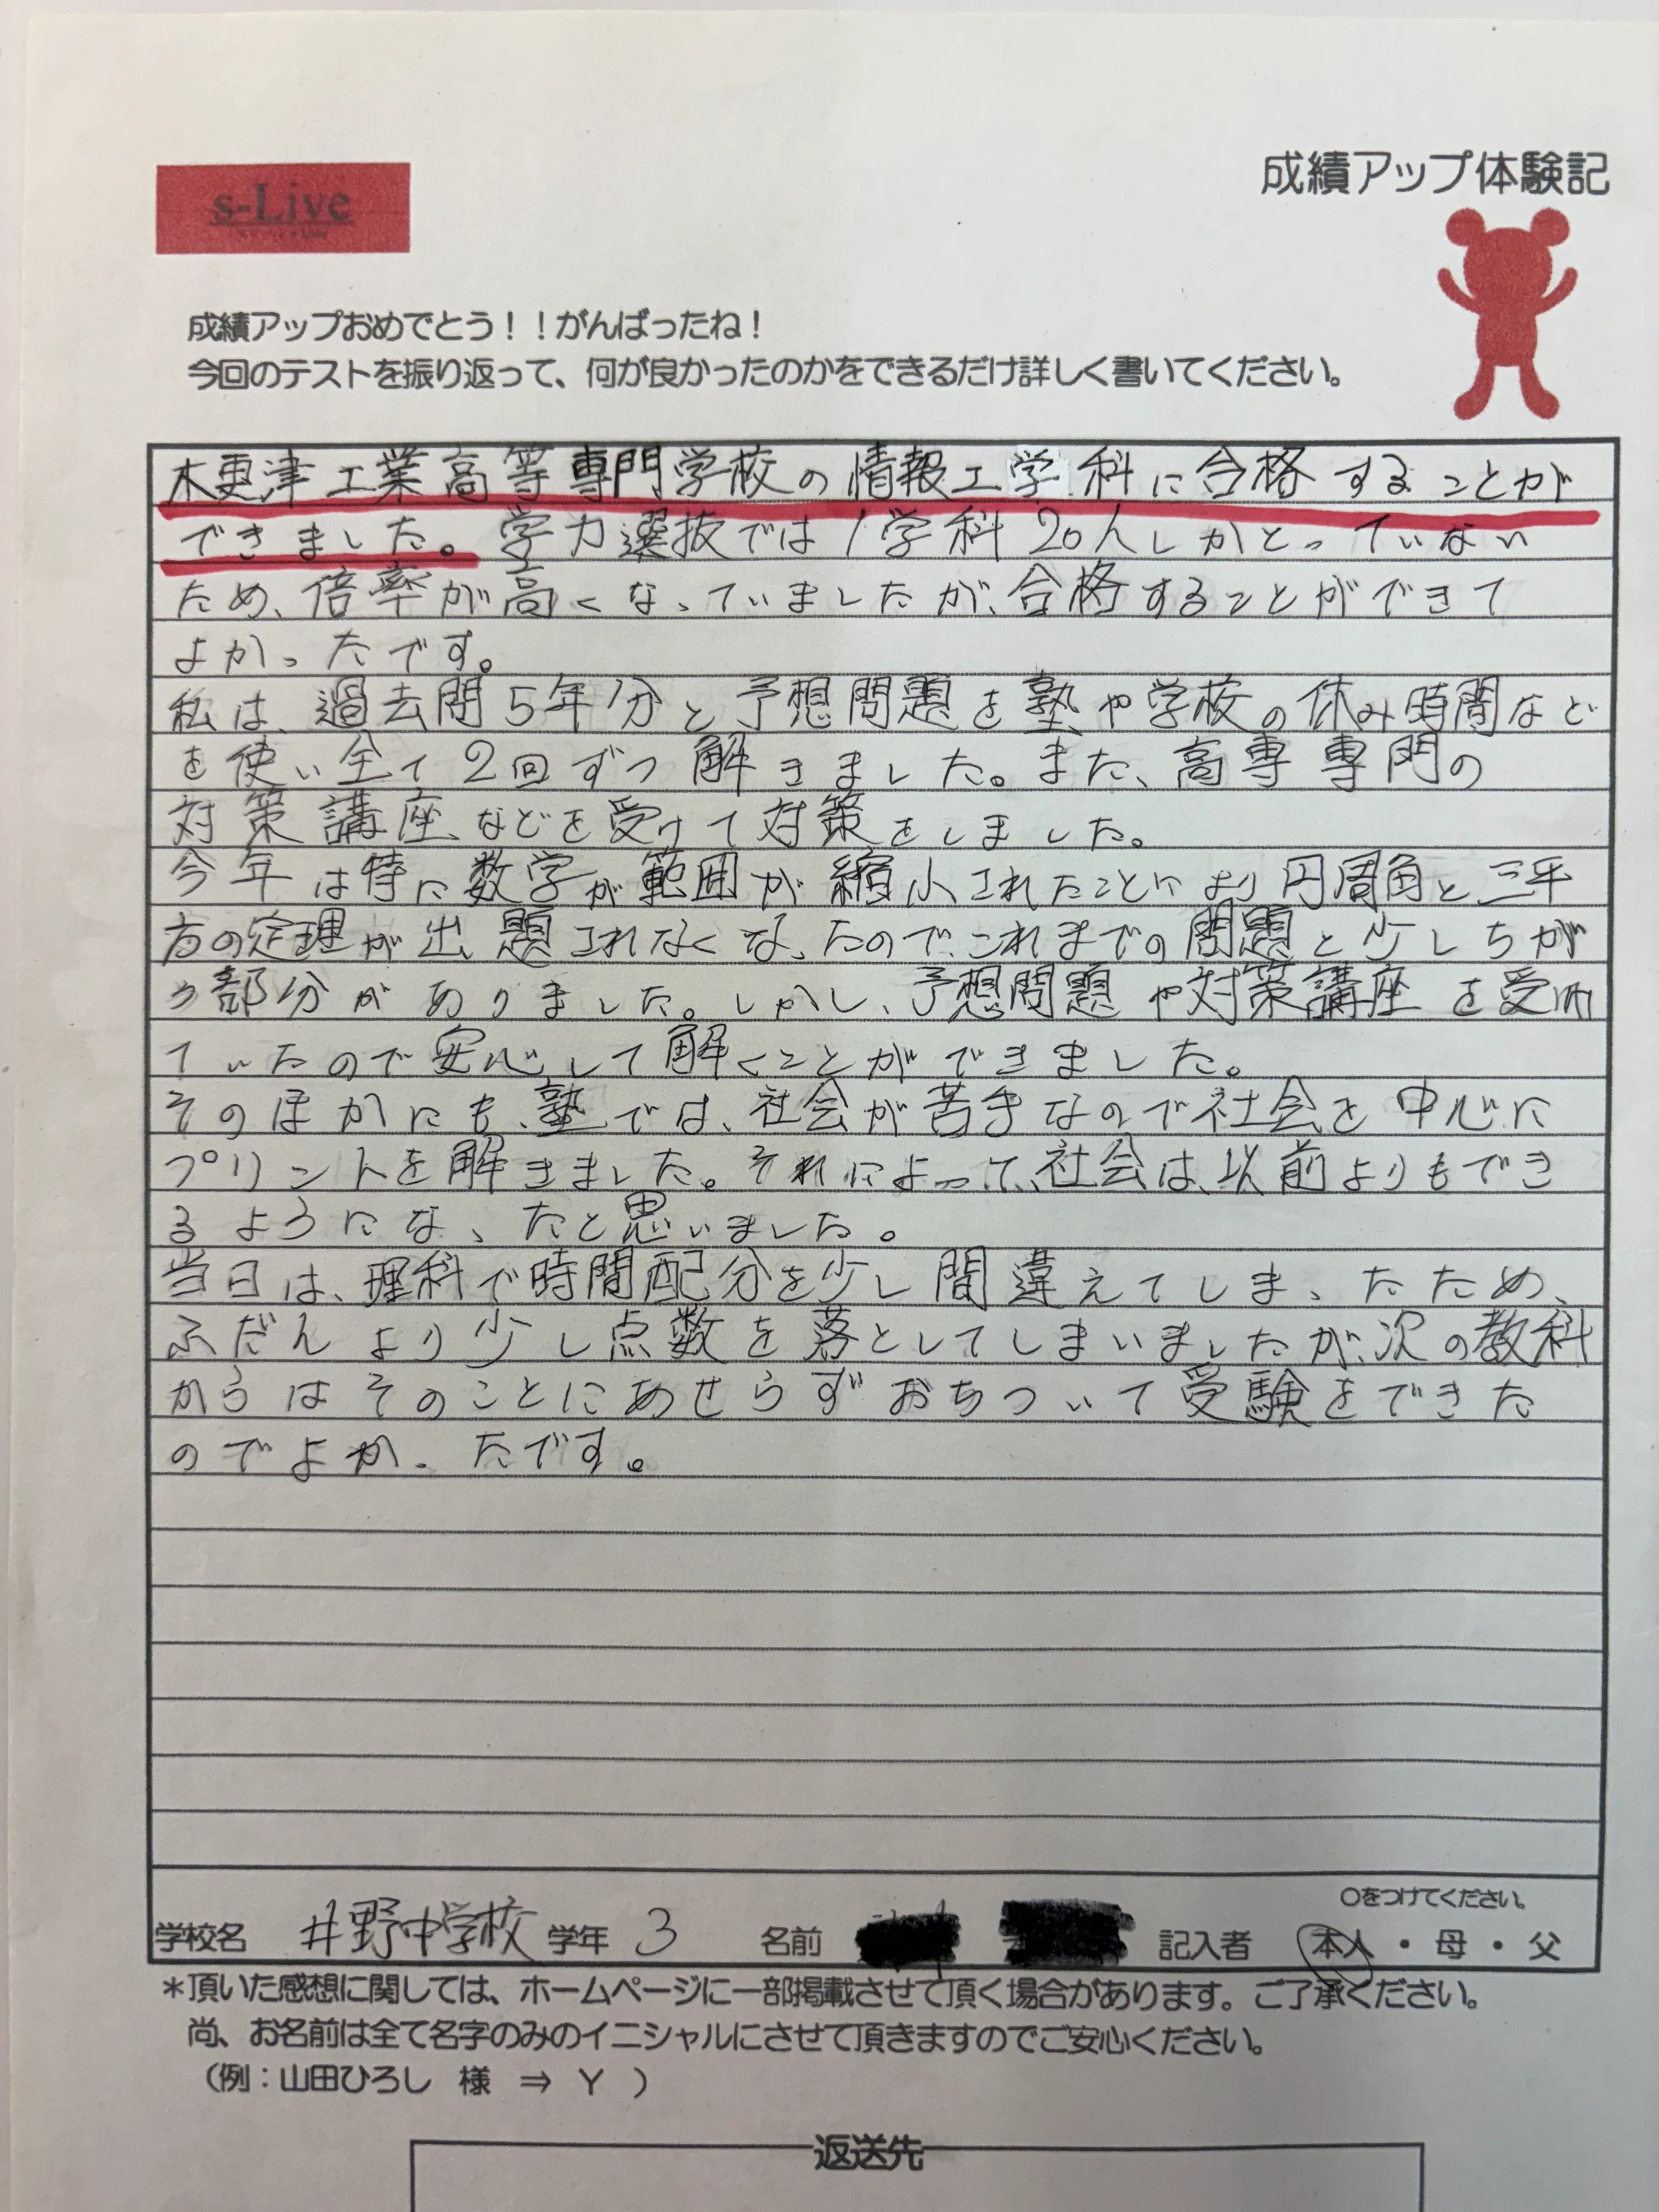 成績アップ体験記
s-Live
成績アップおめでとう！！がんばったね！
今回のテストを振り返って、何が良かったのかをできるだけ詳しく書いてください。
木更津工業高等専門学校の情報工学科に合格することが
できました。学力選抜では1学科20人しかとっていない
ため、倍率が高くなっていましたが、合格することができて
よかったです。
私は、過去問5年分と予想問題を塾や学校の休み時間など
を使い全て2回ずつ解きました。また、高専専門の
対策講座などを受けて対策をしました。
今年は特に数学が範囲が縮小されたことにより円周角と三平
方の定理が出題されなくなったのでこれまでの問題と少しちが
う部分がありました。しかし、予想問題や対策講座を受け
ていたので安心して解くことができました。
そのほかにも、塾では、社会が苦手なので社会を中心に
プリントを解きました。それによって、社会は、以前よりもでき
るようになったと思いました。
当日は、理科で時間配分を少し間違えてしまったため、
ふだんより少し点数を落としてしまいましたが、次の教科
からはそのことにあせらずおちついて受験をできた
のでよかったです。
○をつけてください。
学校名 井野中学校 学年 3 名前 記入者 本人・母・父
＊頂いた感想に関しては、ホームページに一部掲載させて頂く場合があります。ご了承ください。
尚、お名前は全て名字のみのイニシャルにさせて頂きますのでご安心ください。
（例：山田ひろし 様 ⇒ Y ）
返送先